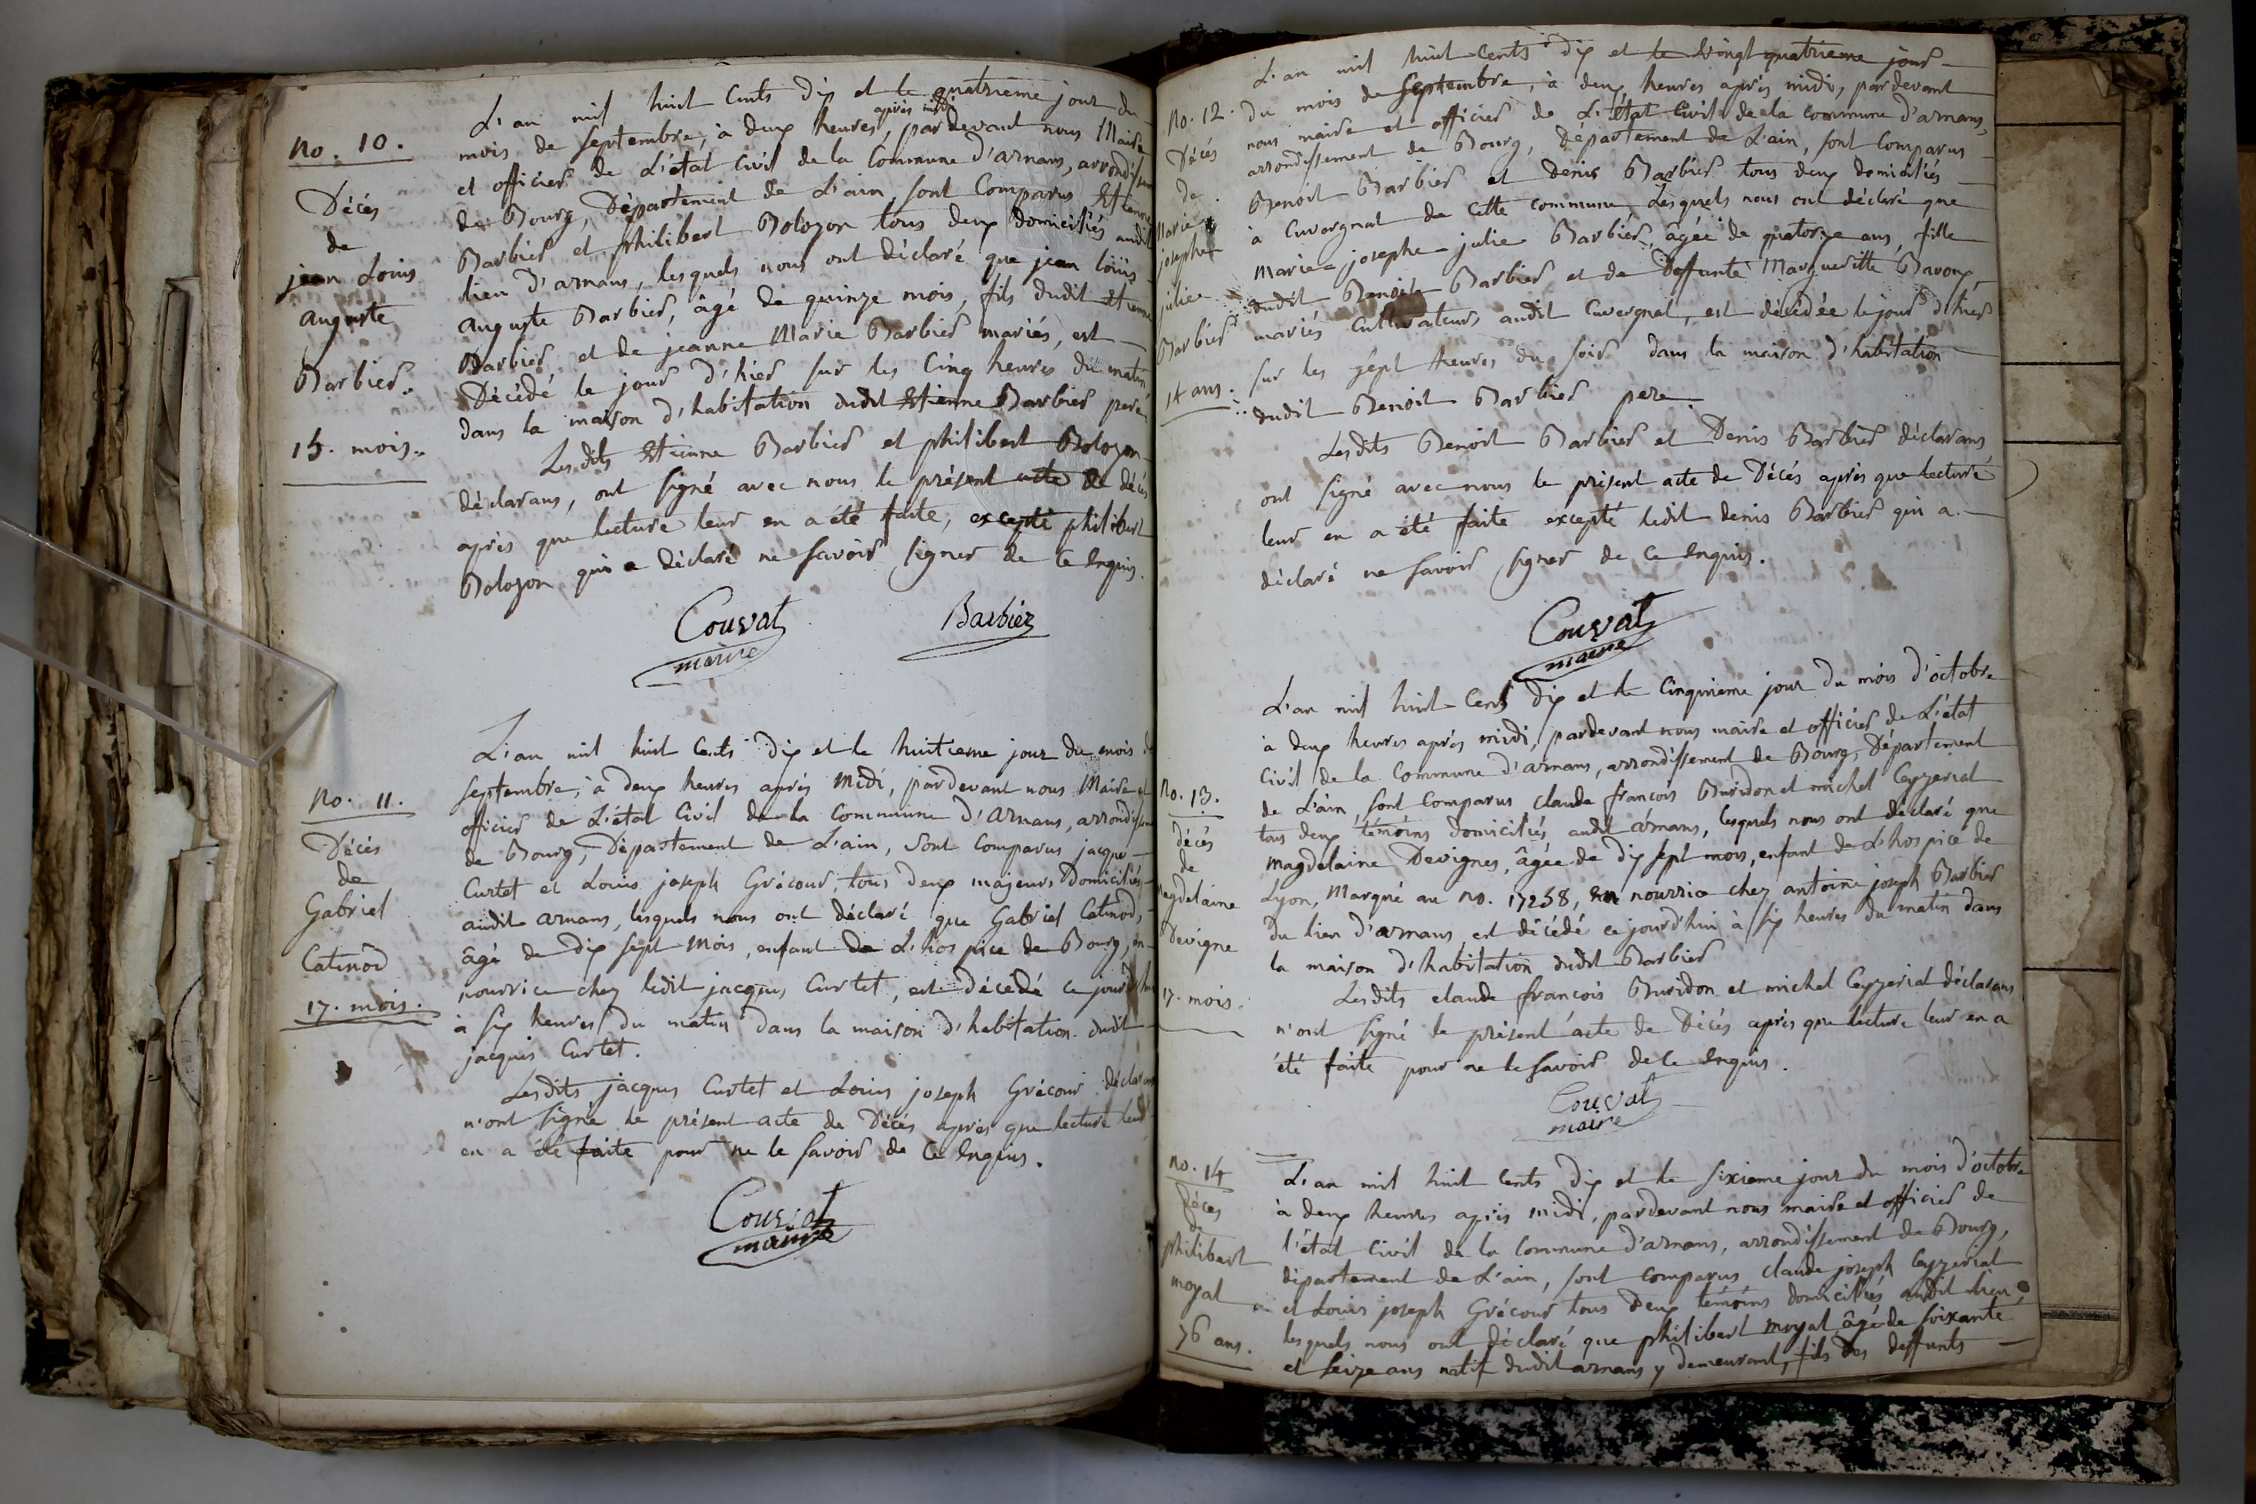 No. 10.
Décés
de
jean Louis
auguste
Barbier.
15. mois.
L'an mil huit Cents dix et le quatrieme jour du
mois de septembre, à deux heures après midi, pardevant nous Maire
et officier de L'état Civil de la Commune d'arnans, arrondissement
de Bourg, Département de L'ain sont Comparus Etienne
Barbier et philibert Bolozon tous deux domiciliés audit
lieu d'arnans, lesquels nous ont déclaré que jean loüis
auguste Barbier, âgé de quinze mois, fils dudit Etienne
Barbier et de jeanne Marie Barbier mariés, est
Décédé le jour d'hier sur les Cinq heures du matin
dans la maison d'habitation dudit Etienne Barbier pere.
Les dits Etienne Barbier et philibert Bolozon
déclarans, ont signé avec nous le présent acte de décés
après que lecture leur en a été faite, excepté philibert
Bolozon qui a déclaré ne savoir signer de ce enquis.
Couvat
maire
Barbier
No. 11.
Décés
de
Gabriel
Catinod
17. mois.
L'an mil huit Cents dix et le huitieme jour du mois de
septembre, à deux heures après midi, pardevant nous Maire et
officier de L'état Civil de la Commune d'arnans, arrondissement
de Bourg, Département de L'ain, sont Comparus jacques
Curtet et Louis joseph Grécour, tous deux majeurs Domiciliés
audit arnans, lesquels nous ont déclaré que Gabriel Catinod,
âgé de dix sept mois, enfant de L'hospice de Bourg, en
nourrice chez ledit jacques Curtet, est décédé ce jourd'hui
à six heures du matin dans la maison d'habitation dudit
jacques Curtet.
Lesdits jacques Curtet et Louis joseph Grécour déclarans
n'ont signé le présent acte de Décés après que lecture leur
en a été faite pour ne le savoir de Ce enquis.
Couvat
maire
No. 12.
Décés
de
Marie
josephe
julie
Barbier
14 ans.
L'an mil huit Cents dix et le Vingt quatrieme jour
du mois de septembre, à deux heures après midi, pardevant
nous maire et officier de L'état Civil de la commune d'arnans,
arrondissement de Bourg, Département de L'ain, sont Comparus
Benoit Barbier et denis Barbier tous deux domiciliés
à Cuvergnat de cette commune, Lesquels nous ont déclaré que
Marie josephe julie Barbier, âgée de quatorze ans, fille
dudit Benoit Barbier et de deffunte Margueritte Bavoux
mariés Cultivateurs audit Cuvergnat, est décédée le jour d'hier
sur les sépt heures du soir dans la maison d'habitation
dudit Benoit Barbier pere.
Lesdits Benoit Barbier et Denis Barbier déclarans
ont signé avec nous le présent acte de Décés après que lecture
leur en a été faite excepté ledit denis Barbier qui a
déclaré ne savoir signer de ce enquis.
Couvat
maire
No. 13.
décés
de
Magdelaine
Devigne
17. mois.
L'an mil huit Cents dix et le Cinquieme jour du mois d'octobre
à deux heures après midi, pardevant nous maire et officier de L'état
Civil de la Commune d'arnans, arrondissement de Bourg, Département
de L'ain, sont Comparus claude francois Buridon et michel Ceyzeriat
tous deux témoins domiciliés audit arnans, lesquels nous ont déclaré que
Magdelaine Devignes, âgée de dix sept mois, enfant de L'hospice de
Lyon, Marqué au no. 17258, en nourrice chez antoine joseph Barbier
du lieu d'arnans, est décédé ce jourd'hui à six heures du matin dans
la maison d'habitation dudit Barbier
Lesdits claude françois Buridon et michel Ceyzeriat déclarans
n'ont signé le présent acte de Décés après que lecture leur en a
été faite pour ne le savoir de ce enquis.
Couvat
maire
no. 14
Décés
de
philibert
moyat
76 ans.
L'an mil huit Cents dix et le sixieme jour du mois d'octobre
à deux heures après midi, pardevant nous maire et officier de
l'état Civil de la Commune d'arnans, arrondissement de Bourg,
département de L'ain, sont comparus claude joseph Ceyzeriat
et Louis joseph Grécour tous deux témoins domiciliés audit lieu
lesquels nous ont déclaré que philibert moyat âgé de soixante
et seize ans natif dudit arnans y demeurant, fils des deffunts